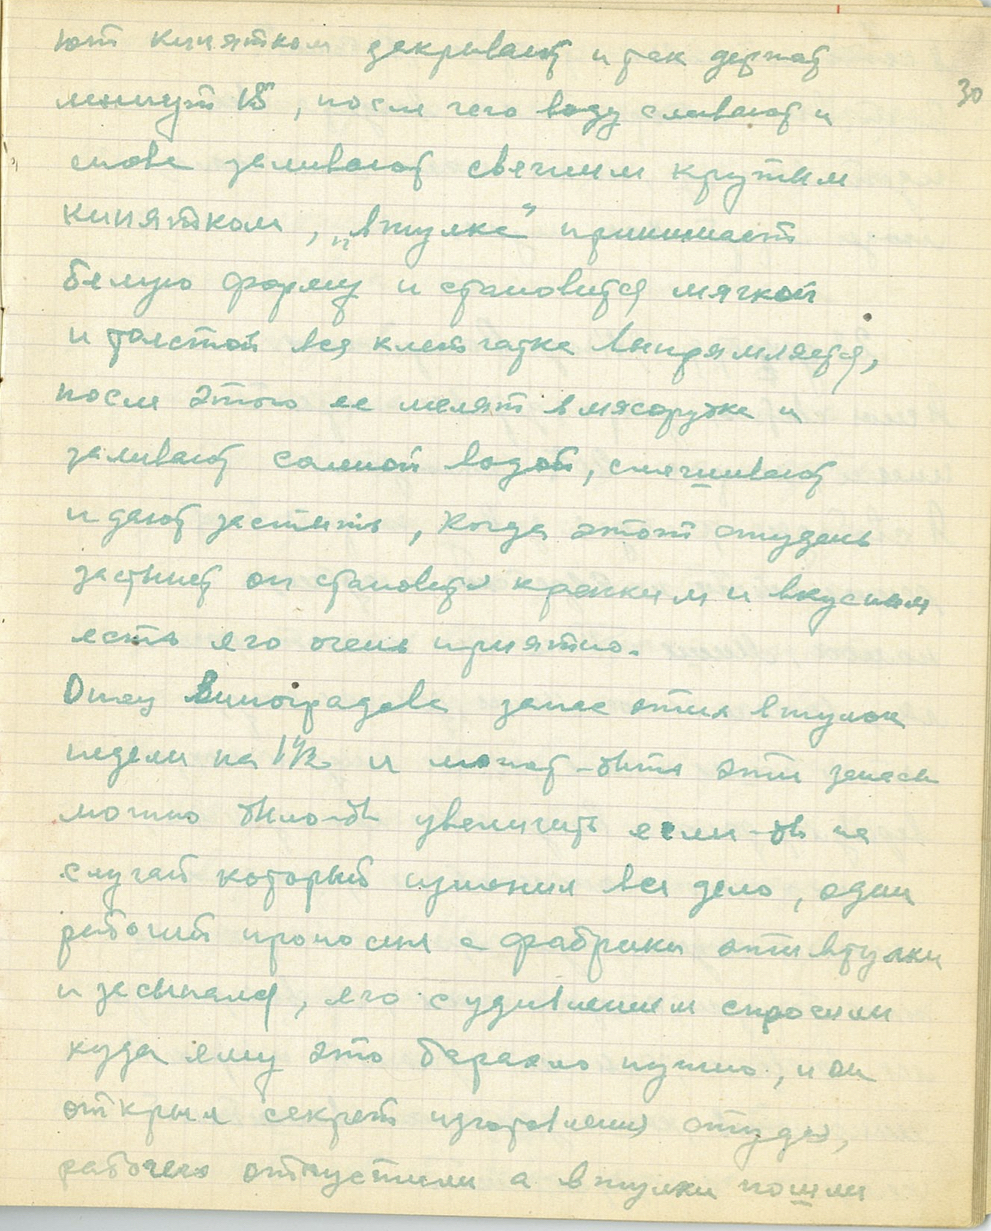 30
ют кипятком закрывают и так держат
минут 15, после чего воду сливают и
снова заливают свежим крутым
кипятком, „втулка“ принимает
белую форму и становится мягкой
и толстой вся клетчатка выпрямляется,
после этого ее мелят в мясорубке и
заливают соленой водой, смешивают
и дают застыть, когда этот студень
застынет он становится крепким и вкусным
есть его очень приятно.
Отец Виноградова запас этих втулок
недели на 1½ и может-быть эти запасы
можно было-бы увеличить если-бы не
случай который изменил все дело, один
рабочий проносил с фабрики эти втулки
и засыпался, его с удивлением спросили
куда ему это барахло нужно, и он
открыл секрет изготовления студня,
рабочего отпустили а втулки пошли